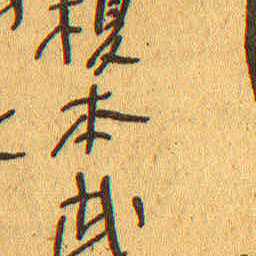 榎本武